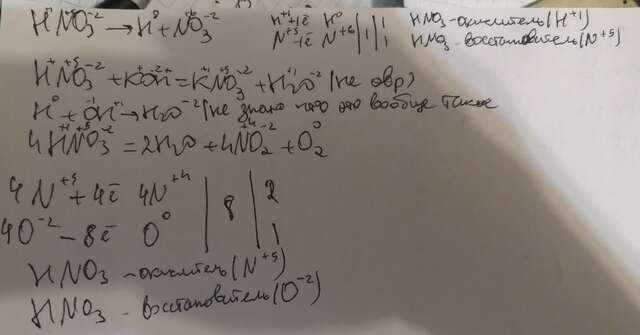 H⁺¹N⁺⁵O₃⁻² → H⁰ + N⁺⁶O₃⁻² H⁺¹+1ē H⁰ | 1 | HNO₃-окислитель(H⁺¹)
N⁺⁵-1ē N⁺⁶ | 1 | HNO₃-восстановитель(N⁺⁵)
H⁺N⁺⁵O₃⁻² + K⁺O⁻²H⁺ = K⁺N⁺⁵O₃⁻² + H₂⁺¹O⁻² (не овр)
H⁰ + O⁻¹H⁺¹ → H₂O⁻² (не знаю что это вообще такое
4H⁺¹N⁺⁵O₃⁻² = 2H₂O + 4N⁺⁴O₂⁻² + O₂⁰
4N⁺⁵ + 4ē 4N⁺⁴ | 8 | 2
4O⁻² - 8ē O⁰ | 1
HNO₃ - окислитель(N⁺⁵)
HNO₃ - восстановитель(O⁻²)